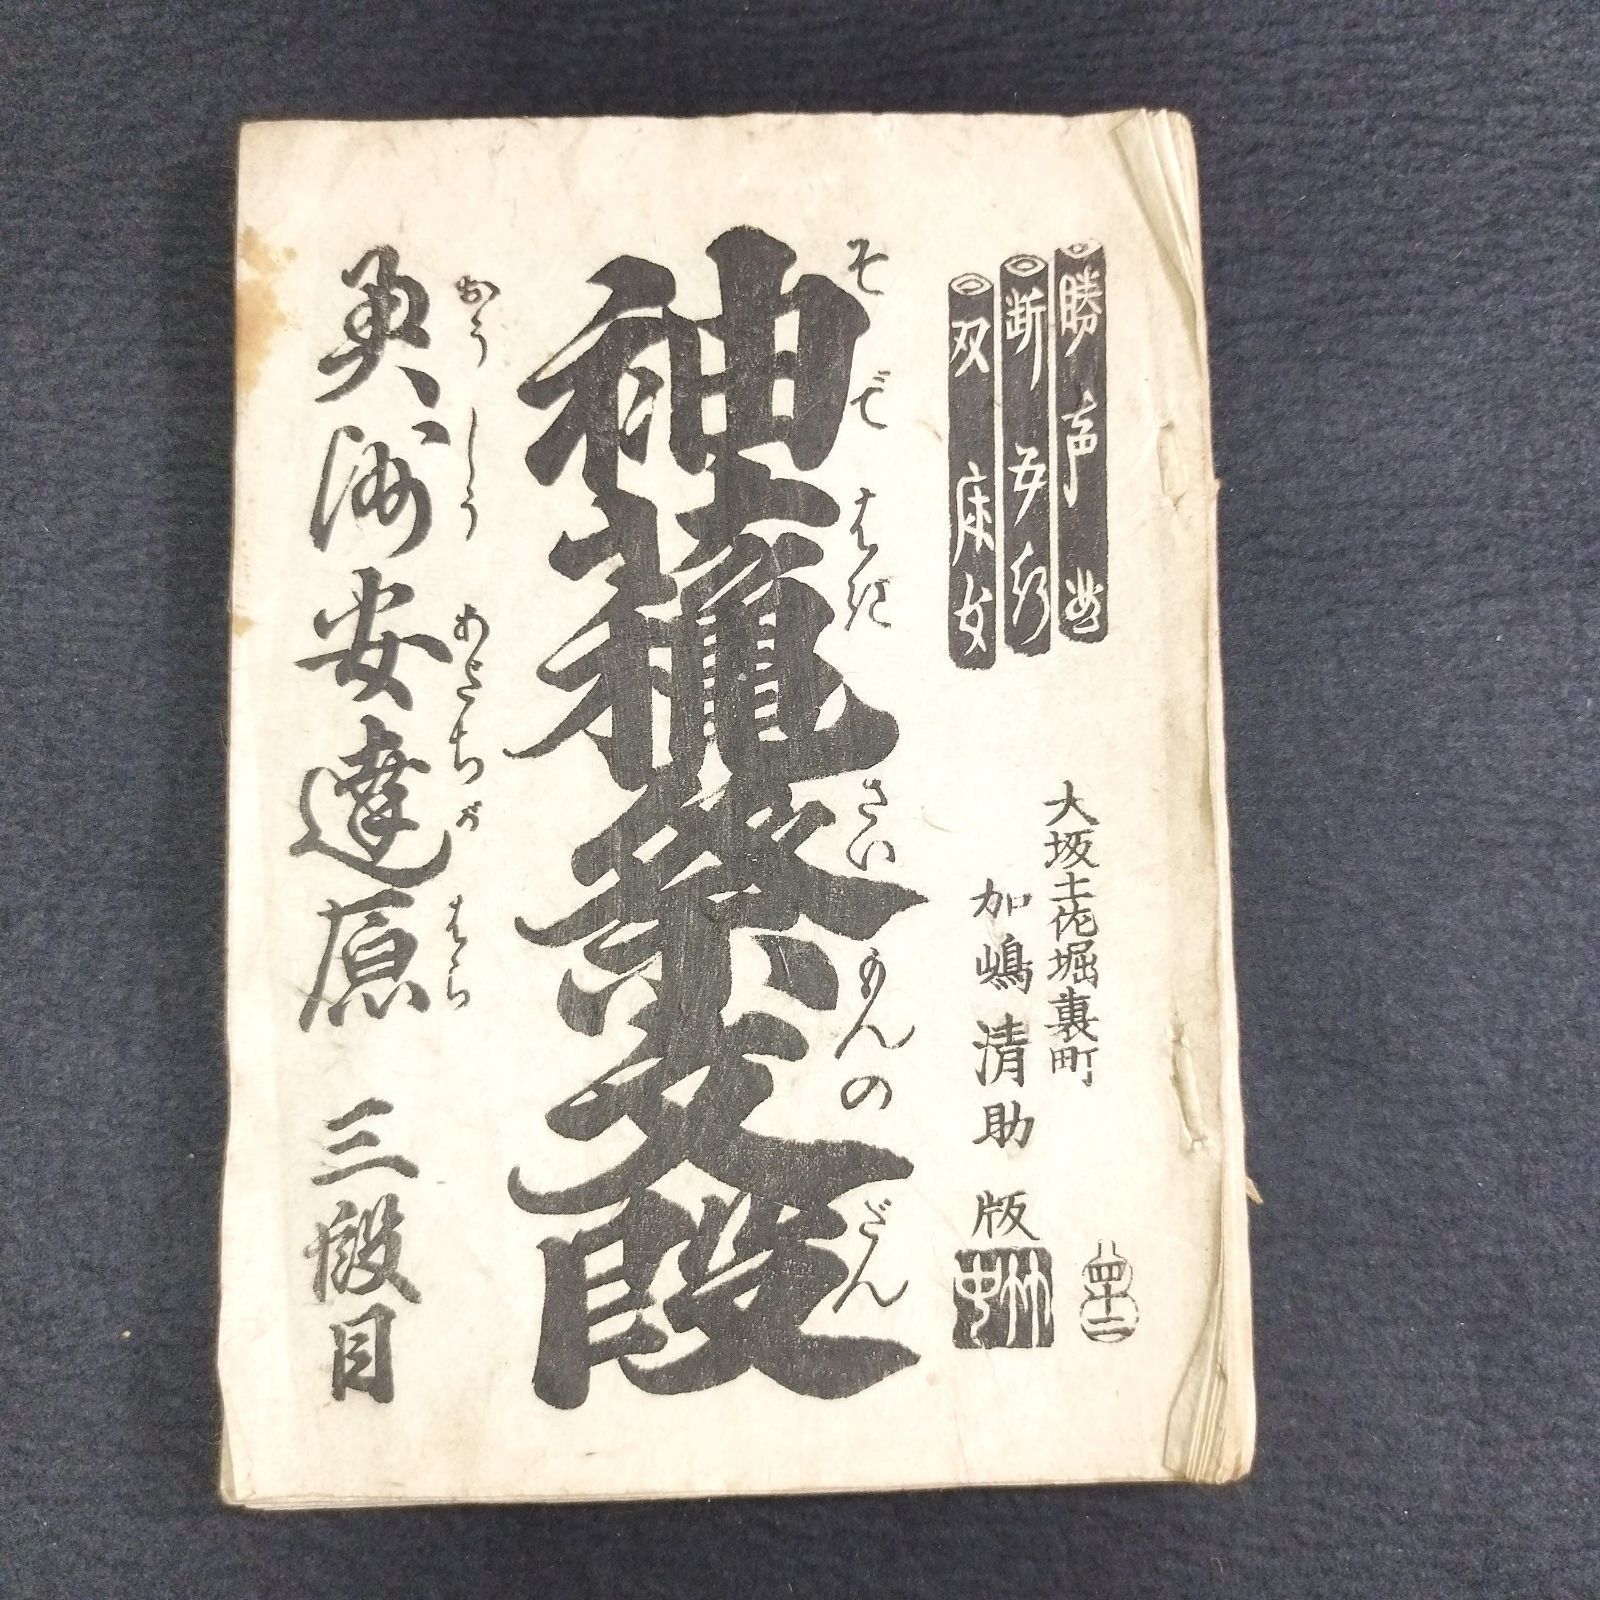 大坂土佐堀裏町
加嶋清助版
四十二
そではぎさいもんのだん
袖萩祭文段
おうしうあだちがはら
奥州安達原 三段目